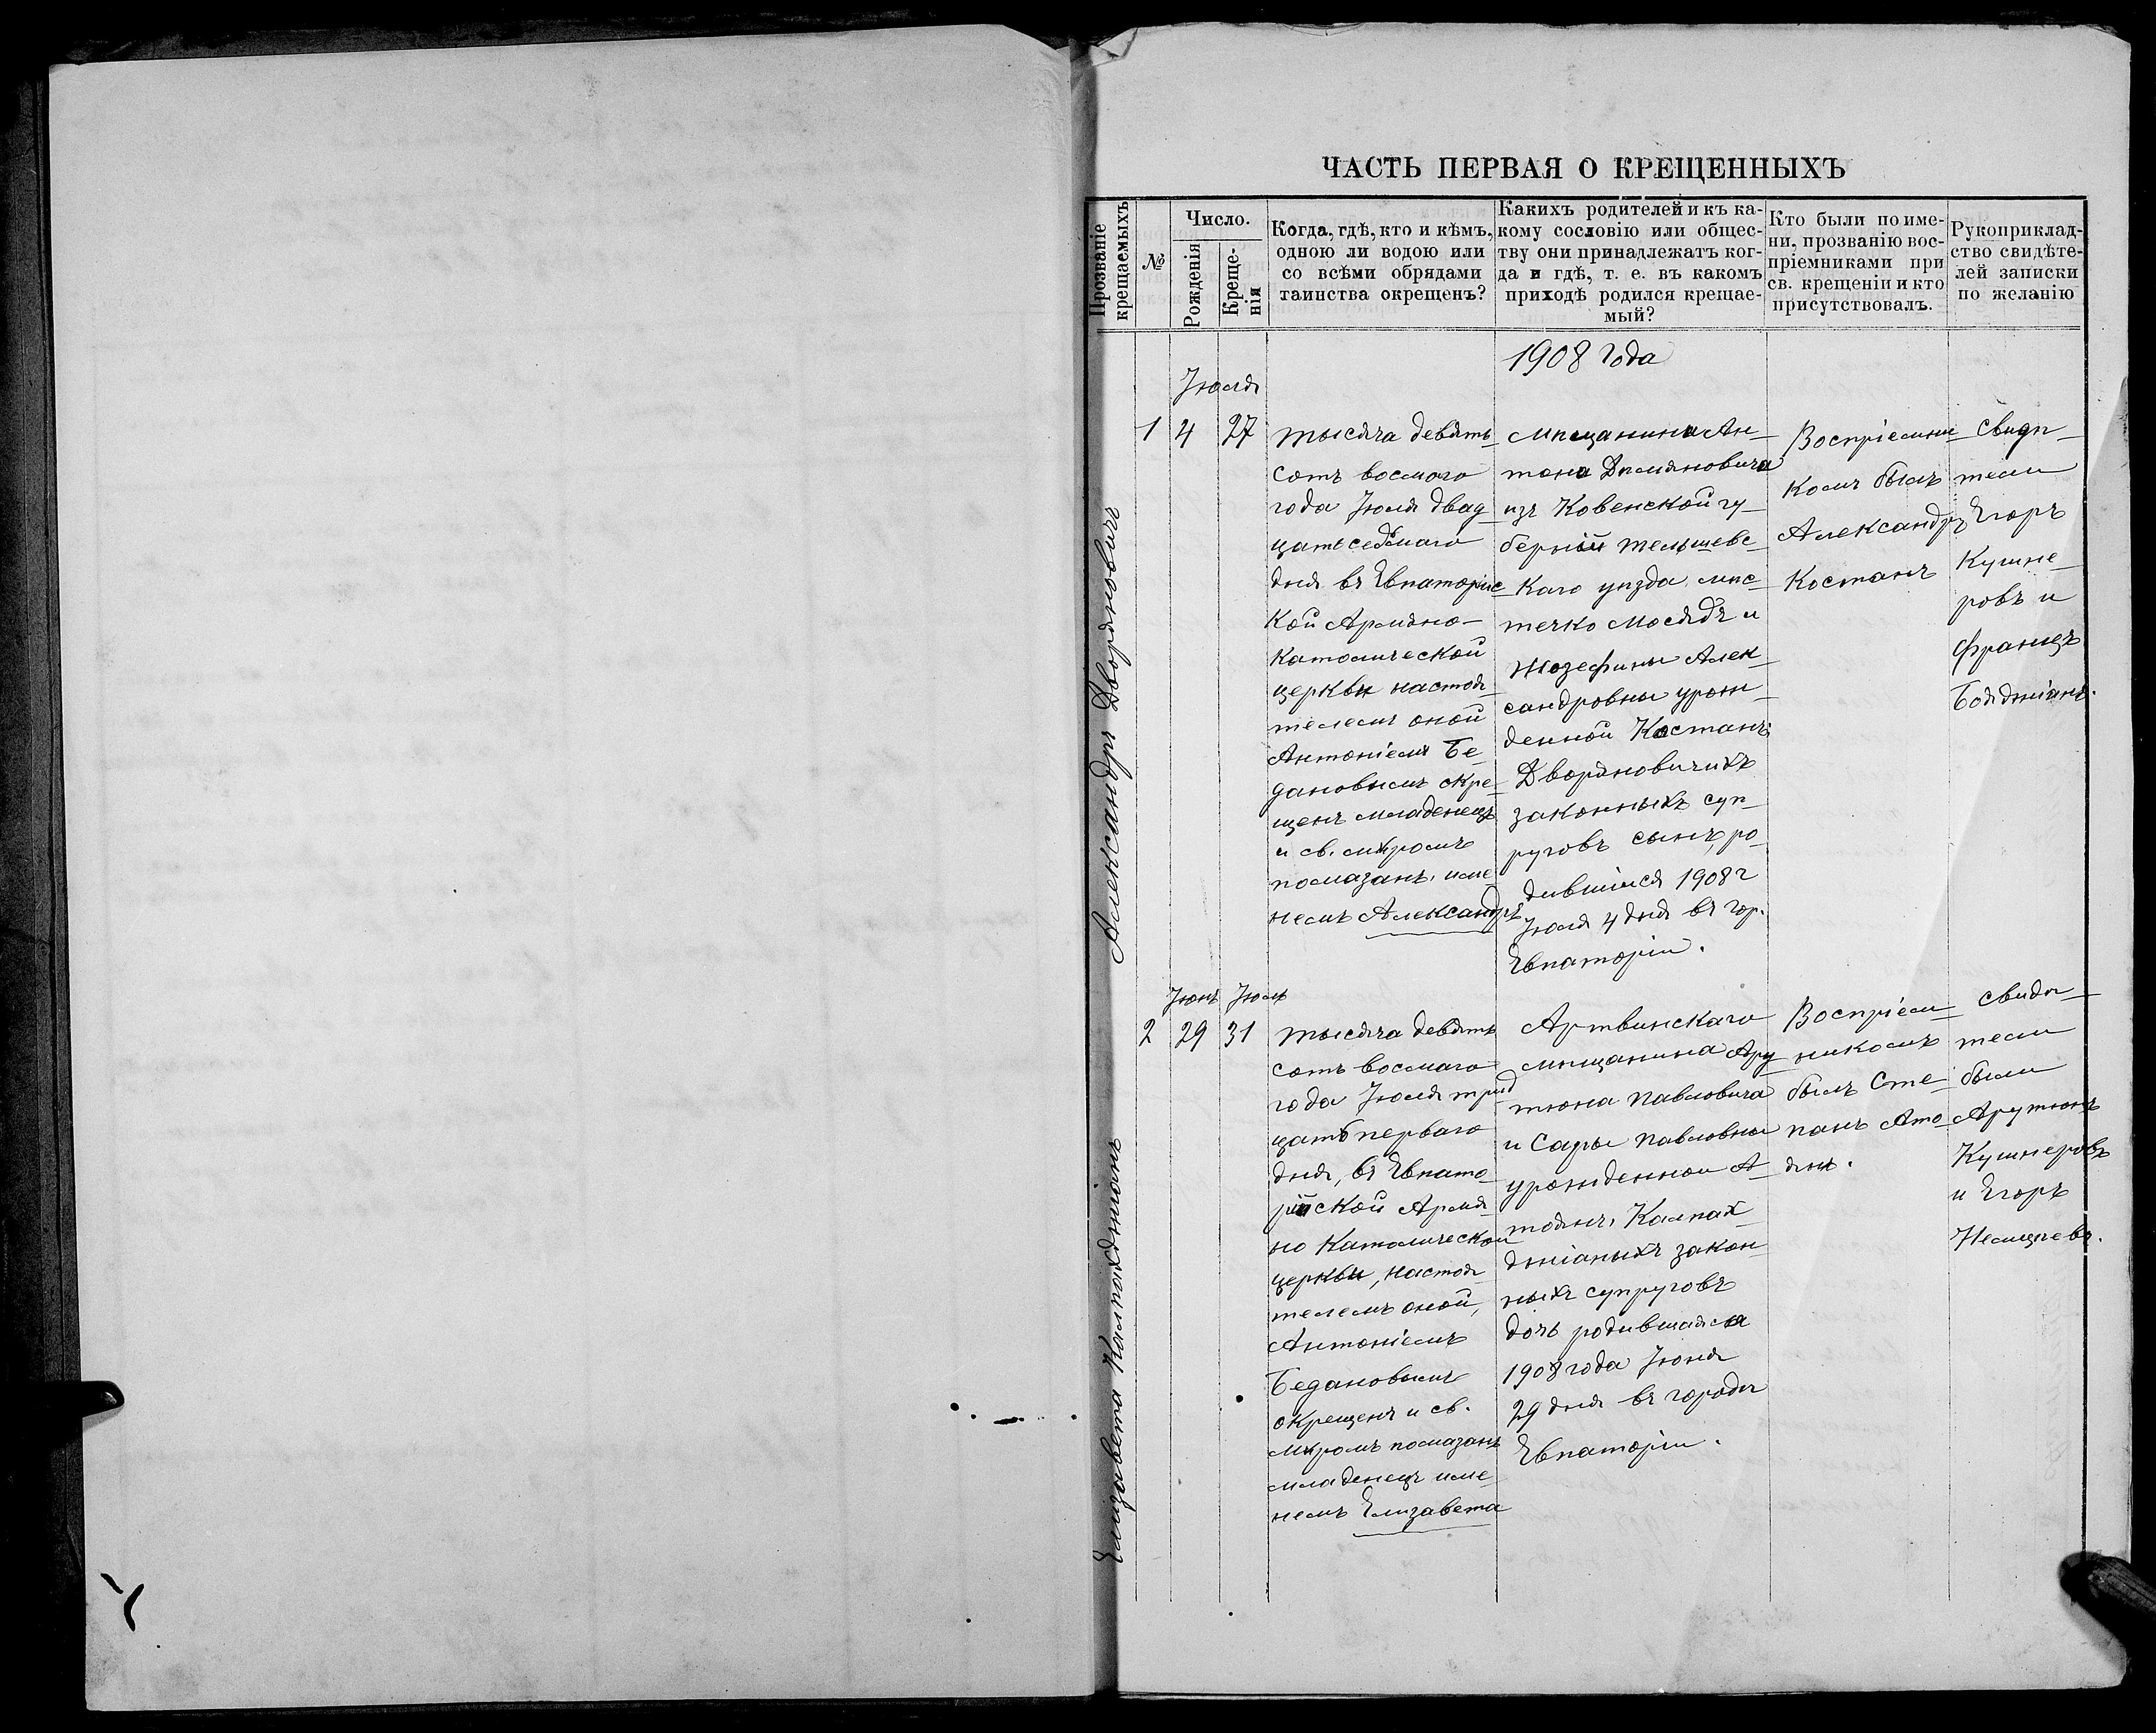 ЧАСТЬ ПЕРВАЯ О КРЕЩЕННЫХЪ
Прозваніе
крещаемыхъ
№
Число.
Рожденія
Креще-
нія
Когда, гдѣ, кто и кѣмъ,
одною ли водою или
со всѣми обрядами
таинства окрещенъ?
Какихъ родителей и къ ка-
кому сословію или общес-
тву они принадлежатъ ког-
да и гдѣ, т. е. въ какомъ
приходѣ родился крещае-
мый?
Кто были по име-
ни, прозванію вос-
пріемниками при
св. крещеніи и кто
присутствовалъ.
Рукоприклад-
ство свидѣте-
лей записки
по желанію
1908 года
Іюля
Александръ Дворяновичъ
1
4
27
тысяча девять-
сотъ восмого
года Іюля двад-
цатьседьмаго
дня въ Евпаторіис-
кой Армяно-
католической
церкви настоя-
телемъ оной
Антоніемъ Бе-
дановымъ окре-
щенъ младенецъ
и св. миромъ
помазанъ, име-
немъ Александръ
мѣщанина Ан-
тона Демяновича
изъ Ковенской гу-
берніи Тельшевс-
каго уѣзда мѣс-
течко Мосядъ и
Жозефины Алек-
сандровны урож-
денной Костанъ
Дворяновичихъ
законныхъ суп-
руговъ сынъ, ро-
дившійся 1908 г
Іюля 4 дня въ гор.
Евпаторіи.
Воспріемни-
комъ былъ
Александръ
Костанъ
Свидѣ-
тели
Егоръ
Кушне-
ровъ и
Францъ
Бояджіанъ.
Елизавета Калпахджіанъ
Іюнь Іюль
2
29
31
тысяча девять
сотъ восмаго
года Іюля трид
цатьперваго
дня, въ Евпато-
рійской Армя-
но Католической
церкви, настоя-
телемъ оной,
Антоніемъ
Бедановымъ
окрещенъ и св.
миромъ помазанъ
младенецъ име-
немъ Елизавета
Артвинскаго
мѣщанина Ару-
тюна Павловича
и Сары Павловны
урожденной А-
тоянъ, Калпах-
джіаныхъ закон-
ныхъ супруговъ
дочь родившаяся
1908 года Іюня
29 дня въ городѣ
Евпаторіи.
Воспріем-
никомъ
былъ Сте-
панъ Ато-
янъ.
Свидѣ-
тели
были
Арутюнъ
Кушнеровъ
и Егоръ